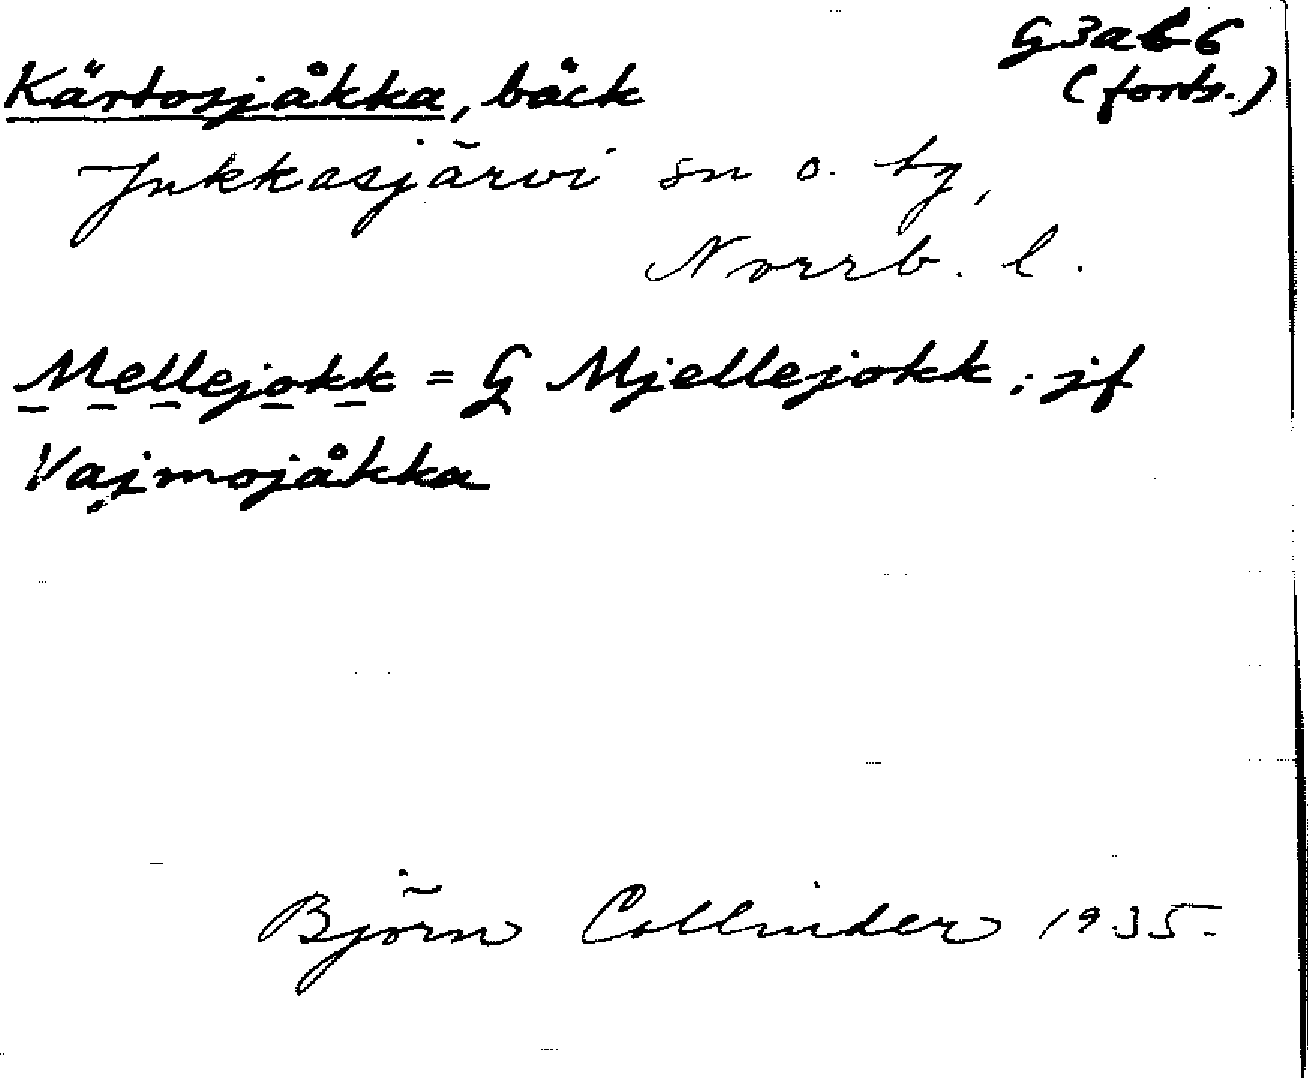 G3ab6
Kärtosjåkka, bäck (forts.)
Jukkasjärvi sn o. tg,
Norrb. l.
Mellejokk = G Mjellejokk; jf
Vajmojåkka
Björn Collinder 1935.